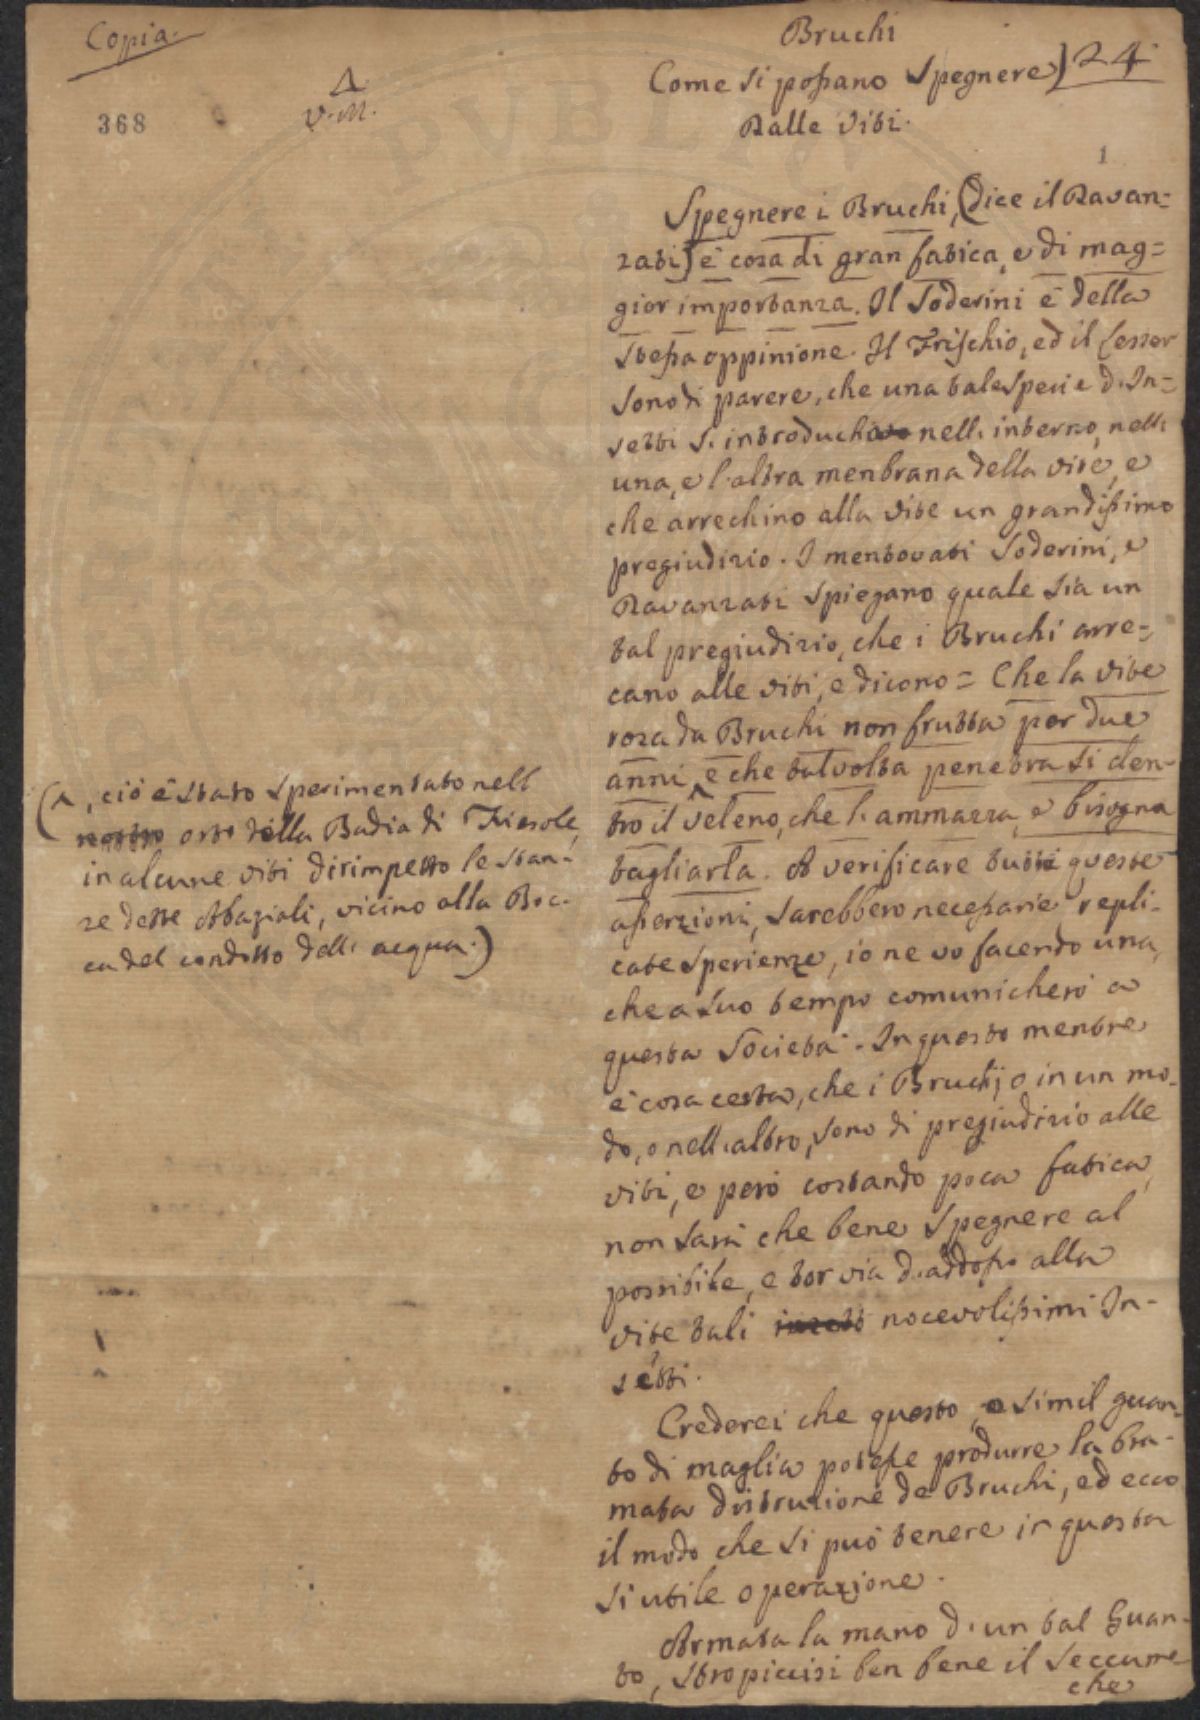 Copia.
368
Δ
V. M.
Bruchi
Come si possano Spegnere) 24
Dalle Viti.
1
Spegnere i Bruchi, (dice il Davan=
zati) è cosa di gran fatica, e di mag=
gior importanza. Il Soderini è della
stessa oppinione. Il Frischio, ed il Lesser
sono di parere, che una tale specie d'In=
setti s'introduchino nell'interno, nell'
una, e l'altra menbrana della vite, e
che arrechino alla vite un grandissimo
pregiudizio. I mentovati Soderini, e
Davanzati spiegano quale sia un
tal pregiudizio, che i Bruchi arre=
cano alle viti, e dicono = Che la vite
rosa da Bruchi non frutta per due
anni ^ e che talvolta penetra sì den-
tro il veleno, che l'ammazza, e bisogna
tagliarla. A verificare tutte queste
asserzioni, sarebbero necessarie repli-
cate sperienze, io ne vo facendo una,
che a suo tempo comunicherò a
questa Società. In questo mentre
è cosa certa, che i Bruchi, o in un mo-
do, o nell'altro, sono di pregiudizio alle
viti, e però costando poca fatica,
non sarà che bene spegnere al
possibile, e tor via d'addosso alla
vite tali nocevolissimi In-
setti.
Crederei che questo, o simil guan-
to di maglia potesse produrre la bra-
mata distruzione de Bruchi, ed ecco
il modo che si può tenere in questa
sì utile operazione.
Armata la mano d'un tal Guan-
to, stropiccisi ben bene il seccume
che
(^, ciò è stato sperimentato nell
nostro orto della Badia di Fiesole,
in alcune viti dirimpetto le stan-
ze dette Abaziali, vicino alla Boc-
ca del condotto dell'acqua.)